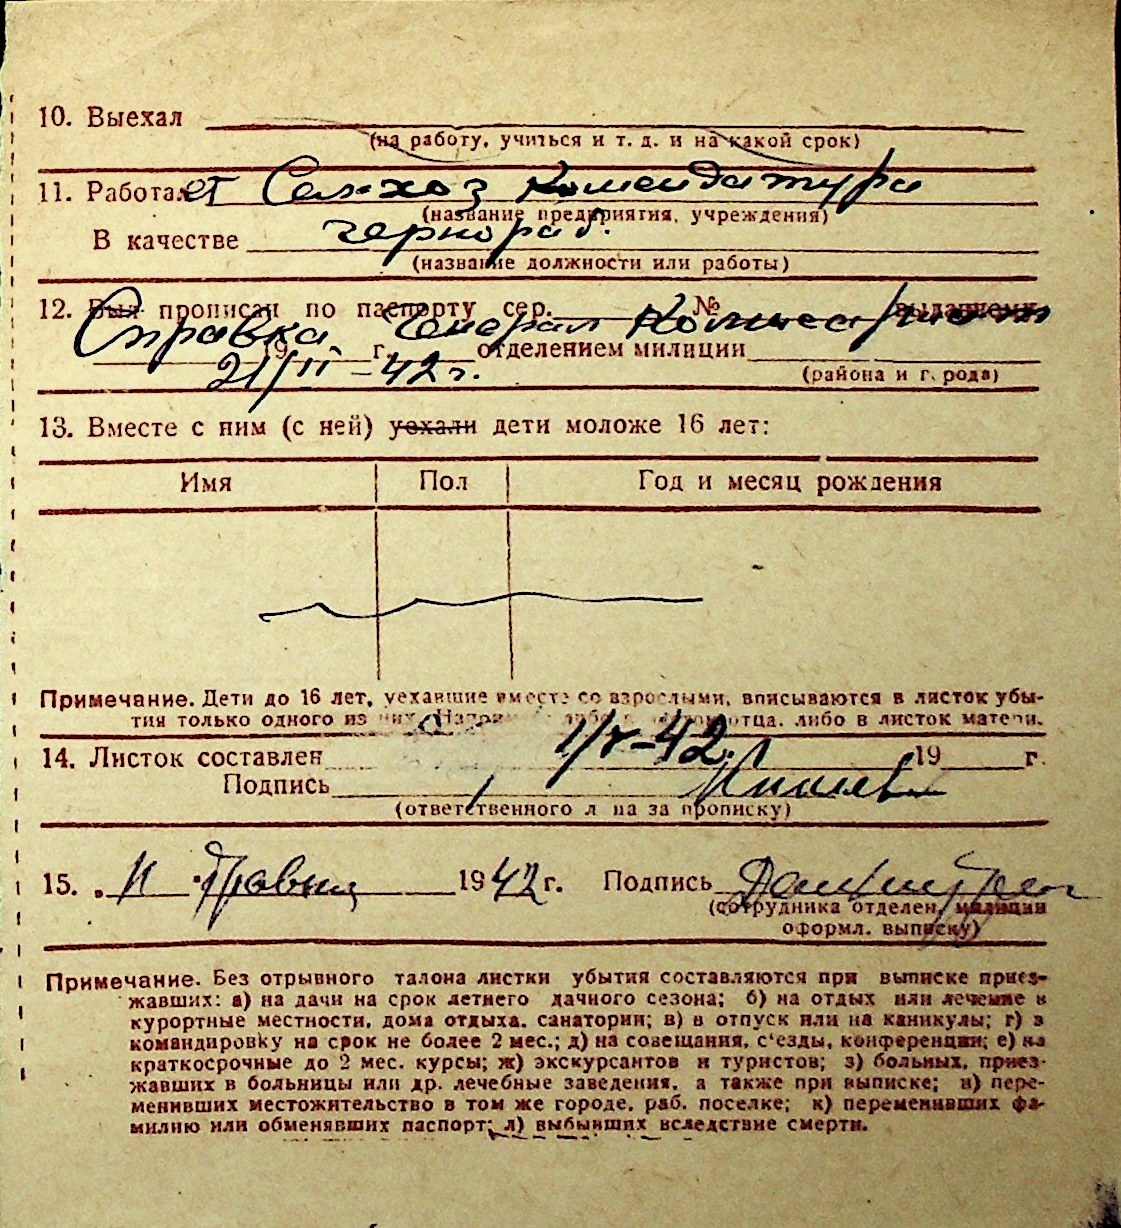 10. Выехал
(на работу, учиться и т. д. и на какой срок)
11. Работает Сельхоз комендатури
(название предприятия, учреждения)
чернораб.
В качестве
(название должности или работы)
12. Был прописан по паспорту сер. № выданному
Справка Генерал Комисариат
19 г. отделением милиции
21/II - 42 г.
(района и города)
13. Вместе с ним (с ней) уехали дети моложе 16 лет:
Имя Пол Год и месяц рождения
Примечание. Дети до 16 лет, уехавшие вместе со взрослыми, вписываются в листок убы-
тия только одного из них. отца, либо в листок матери.
14. Листок составлен 1/V-42 19 г.
Подпись
(ответственного л на за прописку)
15. „ 11 " Травня 1942 г. Подпись
(сотрудника отделен. милиции
оформл. выписку)
Примечание. Без отрывного талона листки убытия составляются при выписке приез-
жавших: а) на дачи на срок летнего дачного сезона; б) на отдых или лечение в
курортные местности, дома отдыха, санатории; в) в отпуск или на каникулы; г) в
командировку на срок не более 2 мес.; д) на совещания, с'езды, конференции; е) на
краткосрочные до 2 мес. курсы; ж) экскурсантов и туристов; з) больных, приез-
жавших в больницы или др. лечебные заведения, а также при выписке; и) пере-
менивших местожительство в том же городе, раб. поселке; к) переменивших фа-
милию или обменявших паспорт; л) выбывших вследствие смерти.